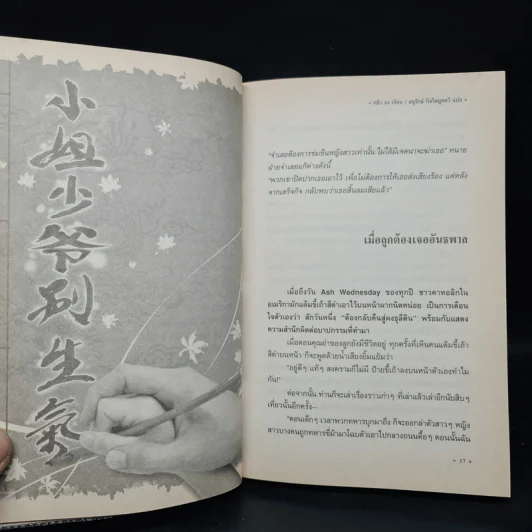 小姐少爺別生氣
• หลิว ยง เขียน / อนุรักษ์ กิจไพบูลทวี แปล •
"จำเลยต้องการข่มขืนหญิงสาวเท่านั้น ไม่ได้มีเจตนาจะฆ่าเธอ" ทนาย
ฝ่ายจำเลยแก้ต่างดังนี้
"พวกเขาปิดปากเธอเอาไว้ เพื่อไม่ต้องการให้เธอส่งเสียงร้อง แต่หลัง
จากเสร็จกิจ กลับพบว่าเธอสิ้นลมเสียแล้ว"
เมื่อลูกต้องเจออันธพาล
เมื่อถึงวัน Ash Wednesday ของทุกปี ชาวคาทอลิกใน
อเมริกามักแต้มขี้เถ้าสีดำเอาไว้บนหน้าผากนิดหน่อย เป็นการเตือน
ใจตัวเองว่า สักวันหนึ่ง "ต้องกลับคืนสู่ผงธุลีดิน" พร้อมกับแสดง
ความสำนึกผิดต่อบาปกรรมที่ทำมา
เมื่อตอนคุณย่าของลูกยังมีชีวิตอยู่ ทุกครั้งที่เห็นคนแต้มขี้เถ้า
สีดำบนหน้า ก็จะพูดด้วยน้ำเสียงยิ้มแย้มว่า
"อยู่ดีๆ แท้ๆ สงครามก็ไม่มี ป้ายขี้เถ้าลงบนหน้าตัวเองทำไม
กัน!"
ต่อจากนั้น ท่านก็จะเล่าเรื่องราวเก่าๆ ที่เล่าแล้วเล่าอีกนับสิบๆ
เที่ยวนั้นอีกครั้ง—
"ตอนเด็กๆ เวลาพวกทหารบุกมาถึง ก็จะออกล่าตัวสาวๆ หญิง
สาวบางคนถูกทหารขี่ม้ามาโฉบตัวเอาไปกลางถนนดื้อๆ ตอนนั้นฉัน
• 17 •